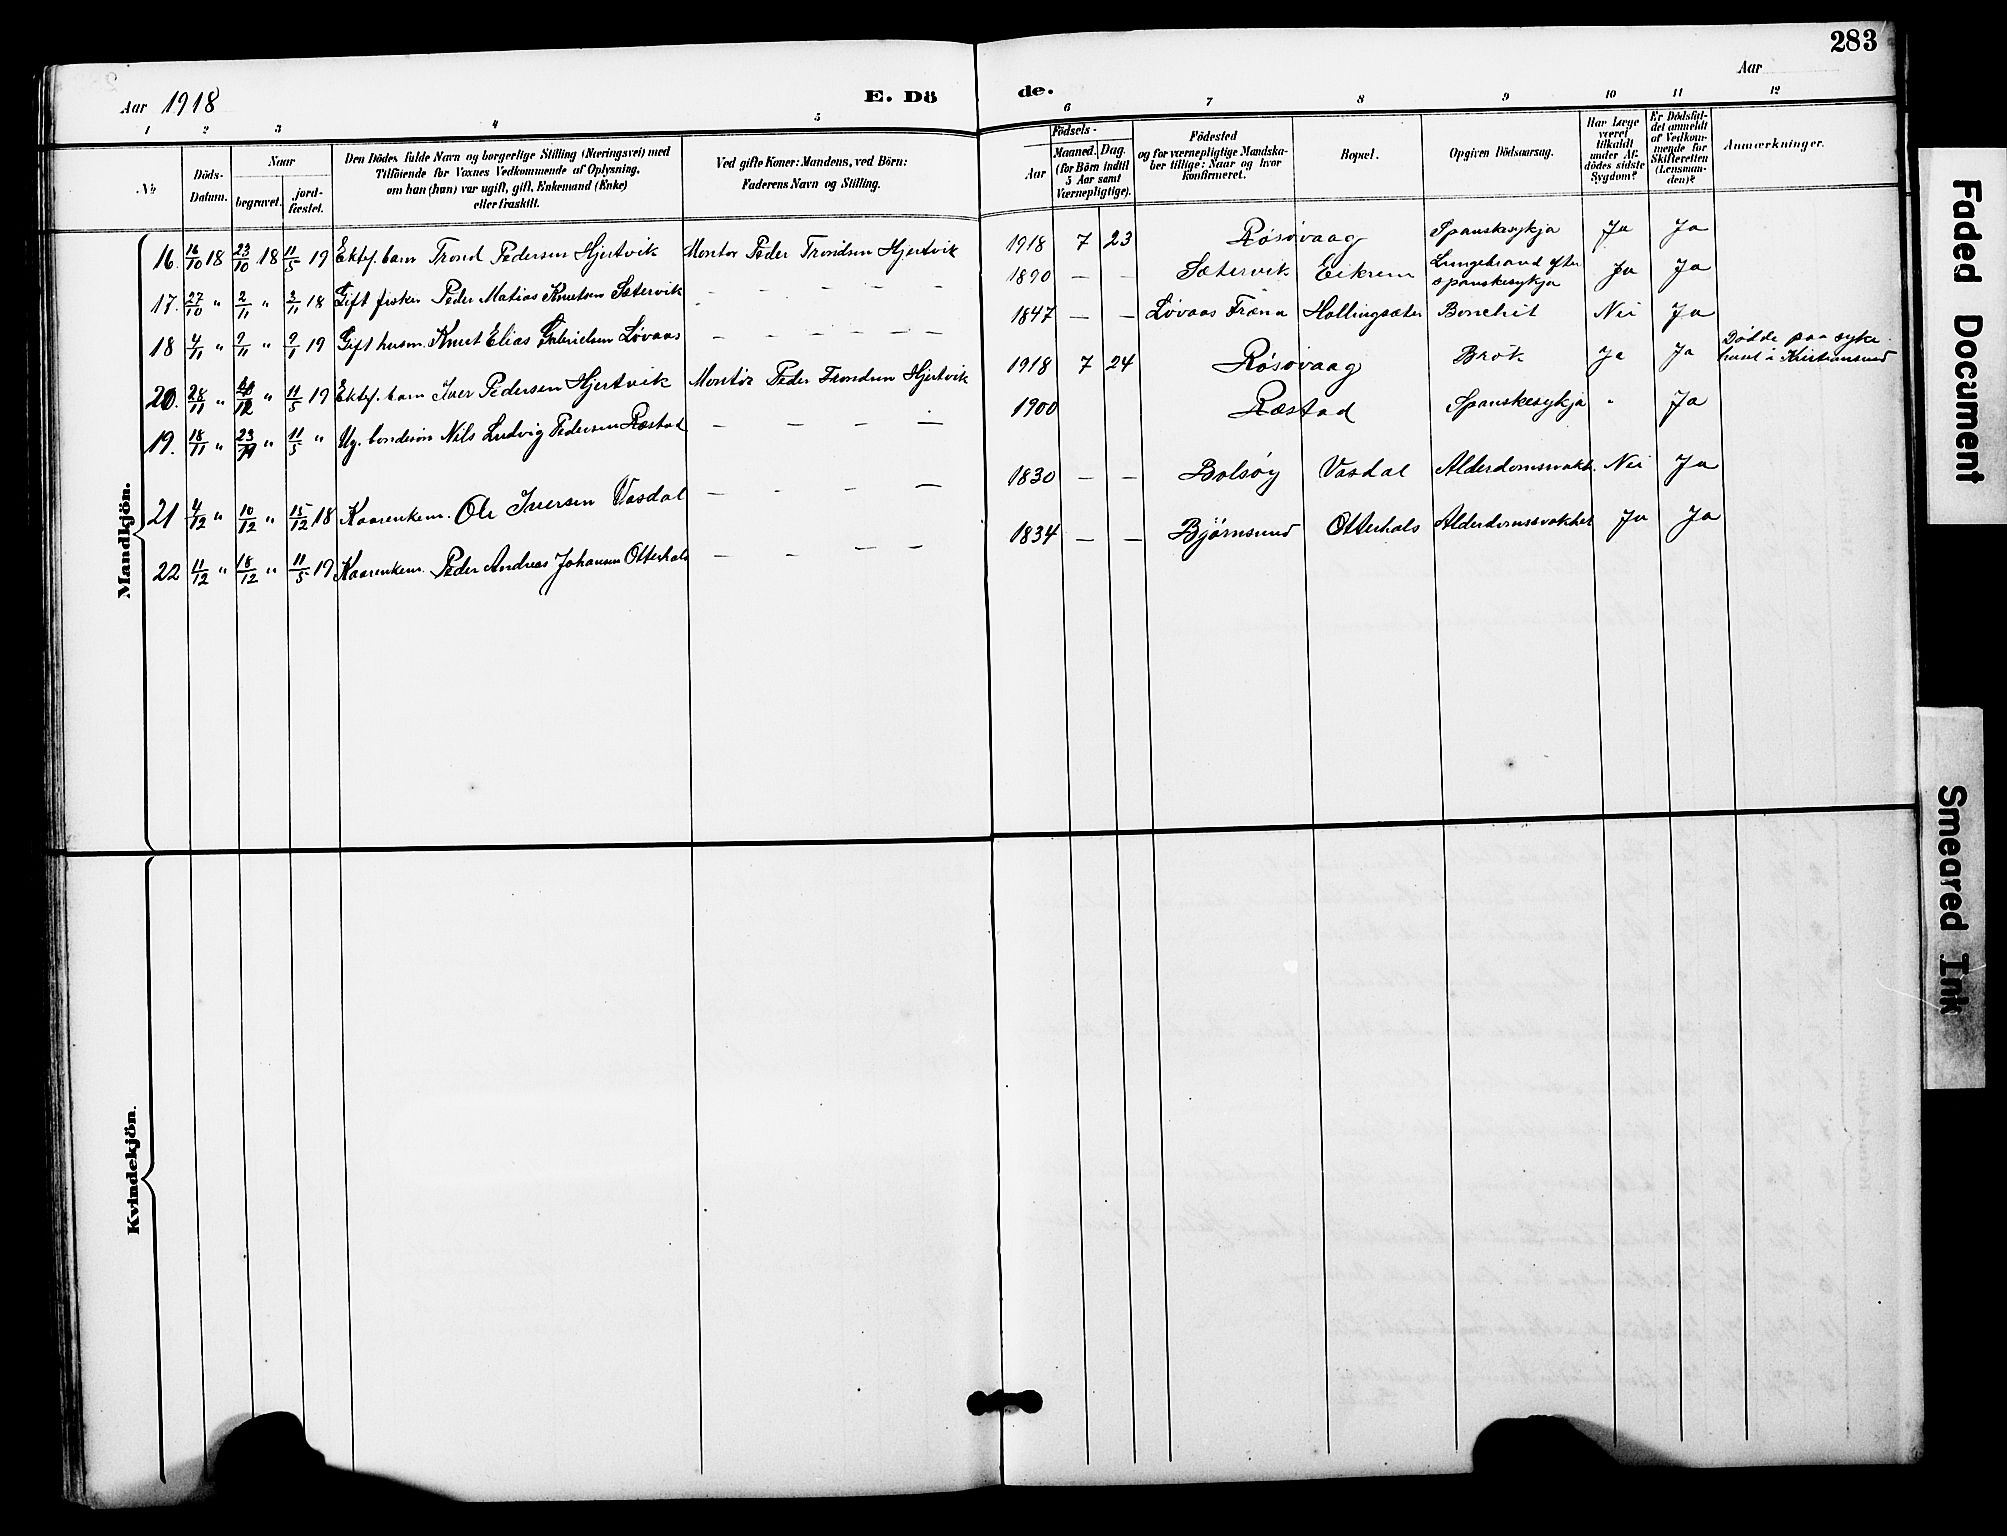 283
Aar 1918
E. Dö
de.
Aar
1 2 3 4 5 6 7 8 9 10 11 12
No
Döds-Datum.
Naar
begravet.
jord-fæstet.
Den Dödes fulde Navn og borgerlige Stilling (Næringsvei) med
Tilföiende for Voxnes Vedkommende af Oplysning,
om han (hun) var ugift, gift, Enkemand (Enke)
eller fraskilt.
Ved gifte Koner: Mandens, ved Börn:
Faderens Navn og Stilling.
Födsels-
Aar
Maaned. Dag.
(for Börn indtil
5 Aar samt
Værnepligtige).
Födested
og for værnepligtige Mandska-
ber tillige: Naar og hvor
konfirmeret.
Bopæl.
Opgiven Dödsaarsag.
Har Læge
været
tilkaldt
under Af-
dödes sidste
Sygdom?
Er Dödsfal-
det anmeldt
af Vedkom-
mende for
Skifteretten
(Lensman-
den)?
Anmærkninger.
Mandkjön.
16. 16/10 18 23/10 18 11/5 19 Ektef. barn Trond Pedersen Hjertvik Montør Peder Trondsen Hjertvik 1918 7 23 Røsøvaag Spanskesykja Ja Ja
17. 27/10 " 2/11 " 2/11 18 Gift fisker Peder Matias Knutsen Sætervik — — — — — 1890 — — Sætervik Eikrem Lungebrand efter spanskesykja Ja Ja
18 4/11 " 9/11 " 9/1 19 Gift husm. Knut Elias Gabrielsen Løvaas — — — — — — 1847 — — Løvaas Fræna Hollingsæter Bronchit Nei Ja
20. 28/11 " /12 " 11/5 19 Ektef. barn Iver Pedersen Hjertvik Montør Peder Trondsen Hjertvik 1918 7 24 Røsøvaag Brok Ja Ja Dødde paa syke-
huset i Kristiansund
19. 18/11 " 23/11 " 11/5 " Ug. bondesøn Nils Ludvig Pedersen Ræstad — — — — 1900 Ræstad Spanskesykja " Ja
21 4/12 " 10/12 " 15/12 18 Kaarenkem. Ole Iversen Vasdal — - — — 1830 — — Bolsøy Vasdal Alderdomssvakh. Nei Ja
22 11/12 " 18/12 " 11/5 19 Kaarenkem. Peder Andreas Johansen Otterhals — - — — 1834 — — Bjørnsund Otterhals Alderdomssvakhet Ja Ja
Kvindekjön.
Faded Document
Smeared Ink